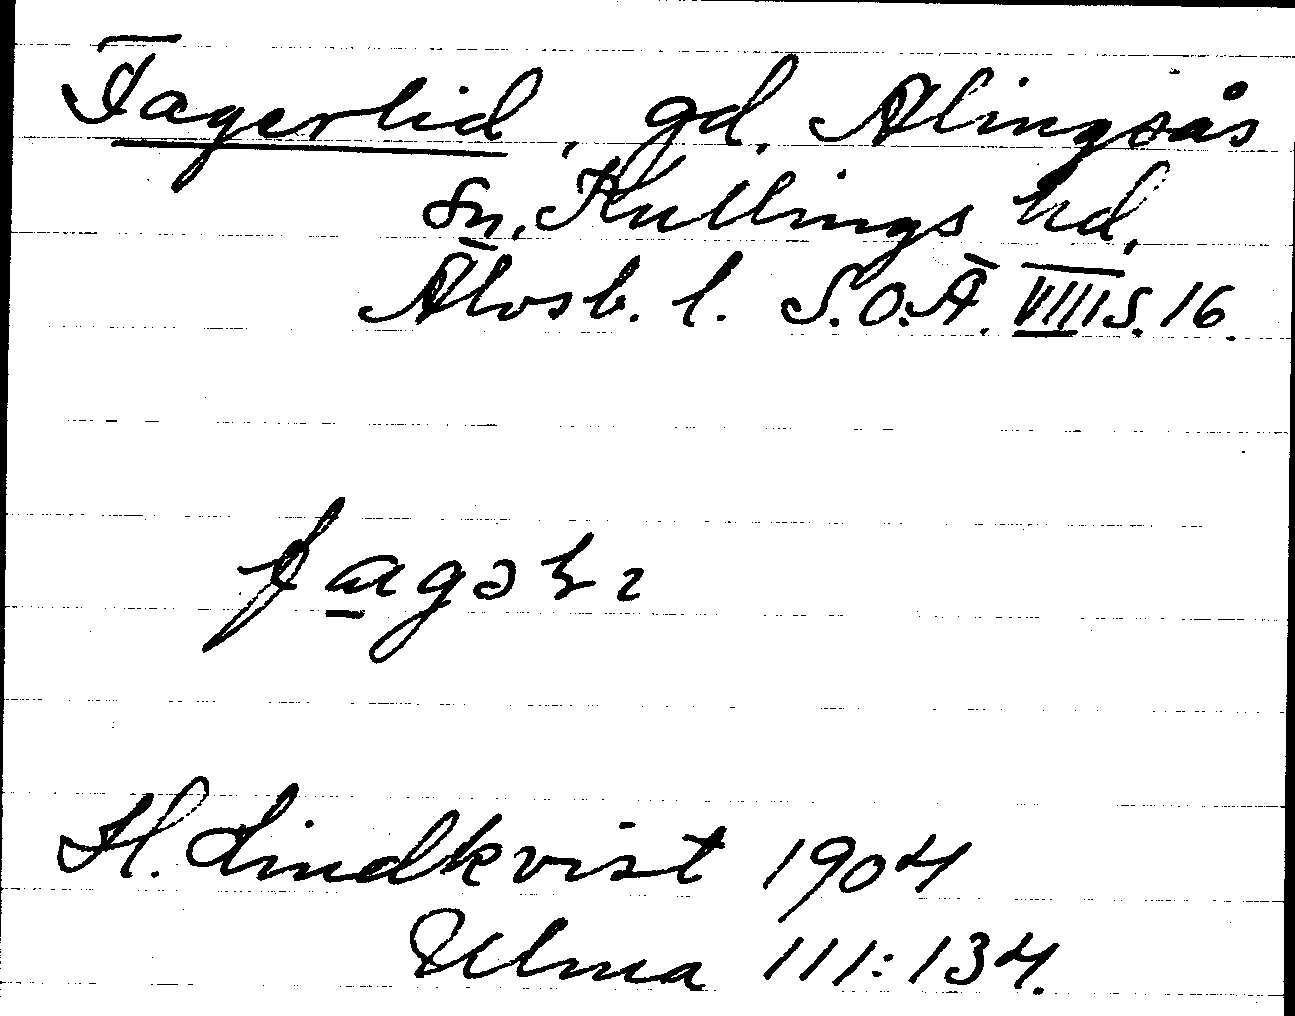 Fagerlid, gd, Alingsås
sn, Kullings hd,
Älvsb. l. S.O.Ä. VIII S. 16.
H. Lindkvist 1904
Ulma 111:134.